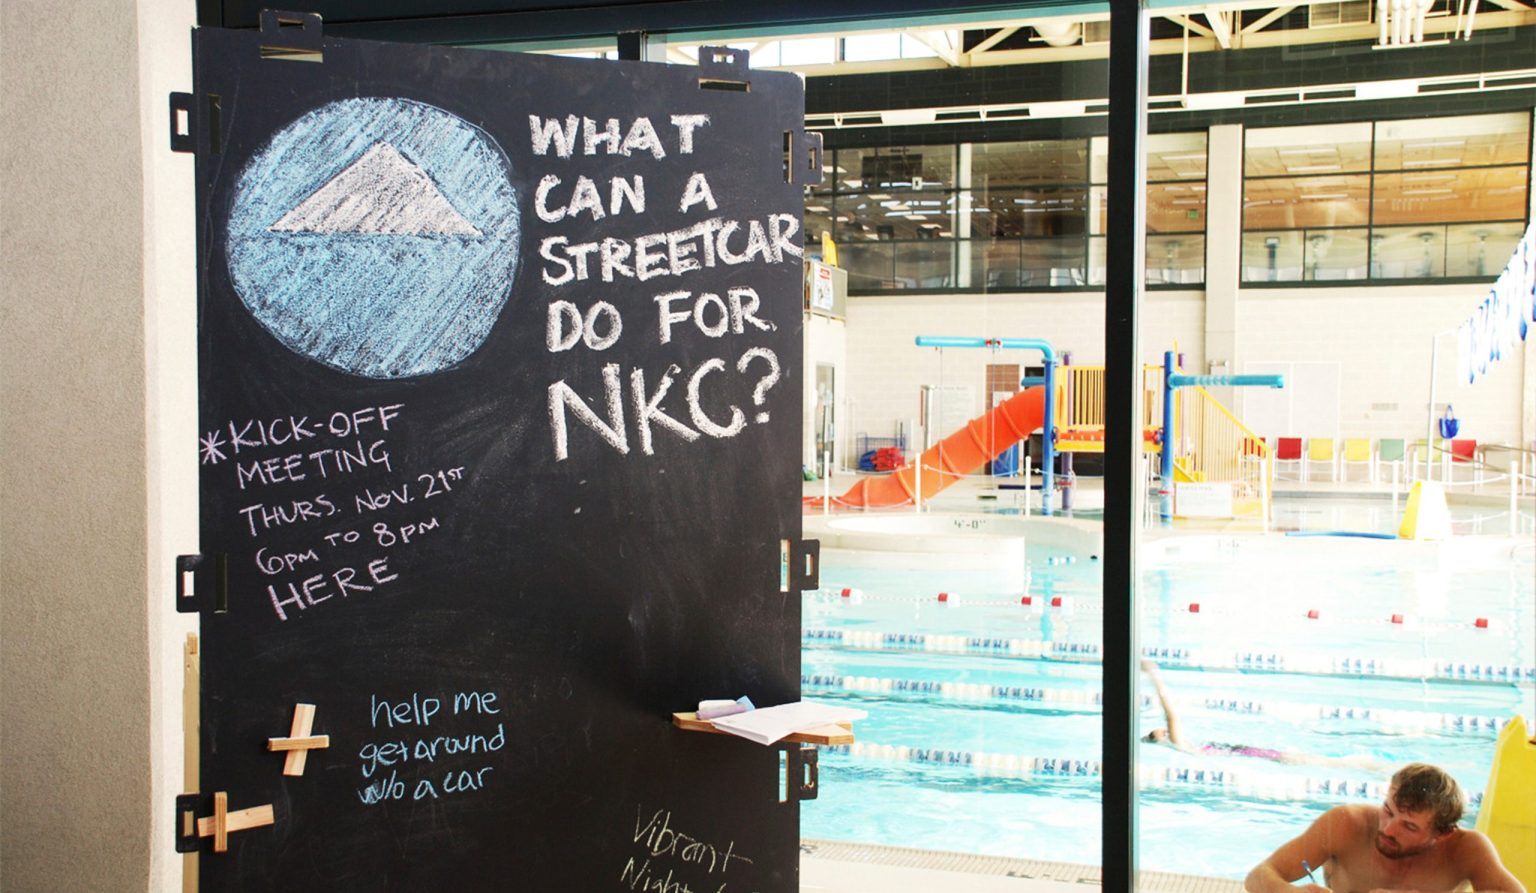 WHAT
CAN A
STREETCAR
DO FOR
NKC?
*KICK-OFF
MEETING
THURS. NOV. 21ST
6PM TO 8PM
HERE
help me
get around
w/o a car
Vibrant
4'-0"